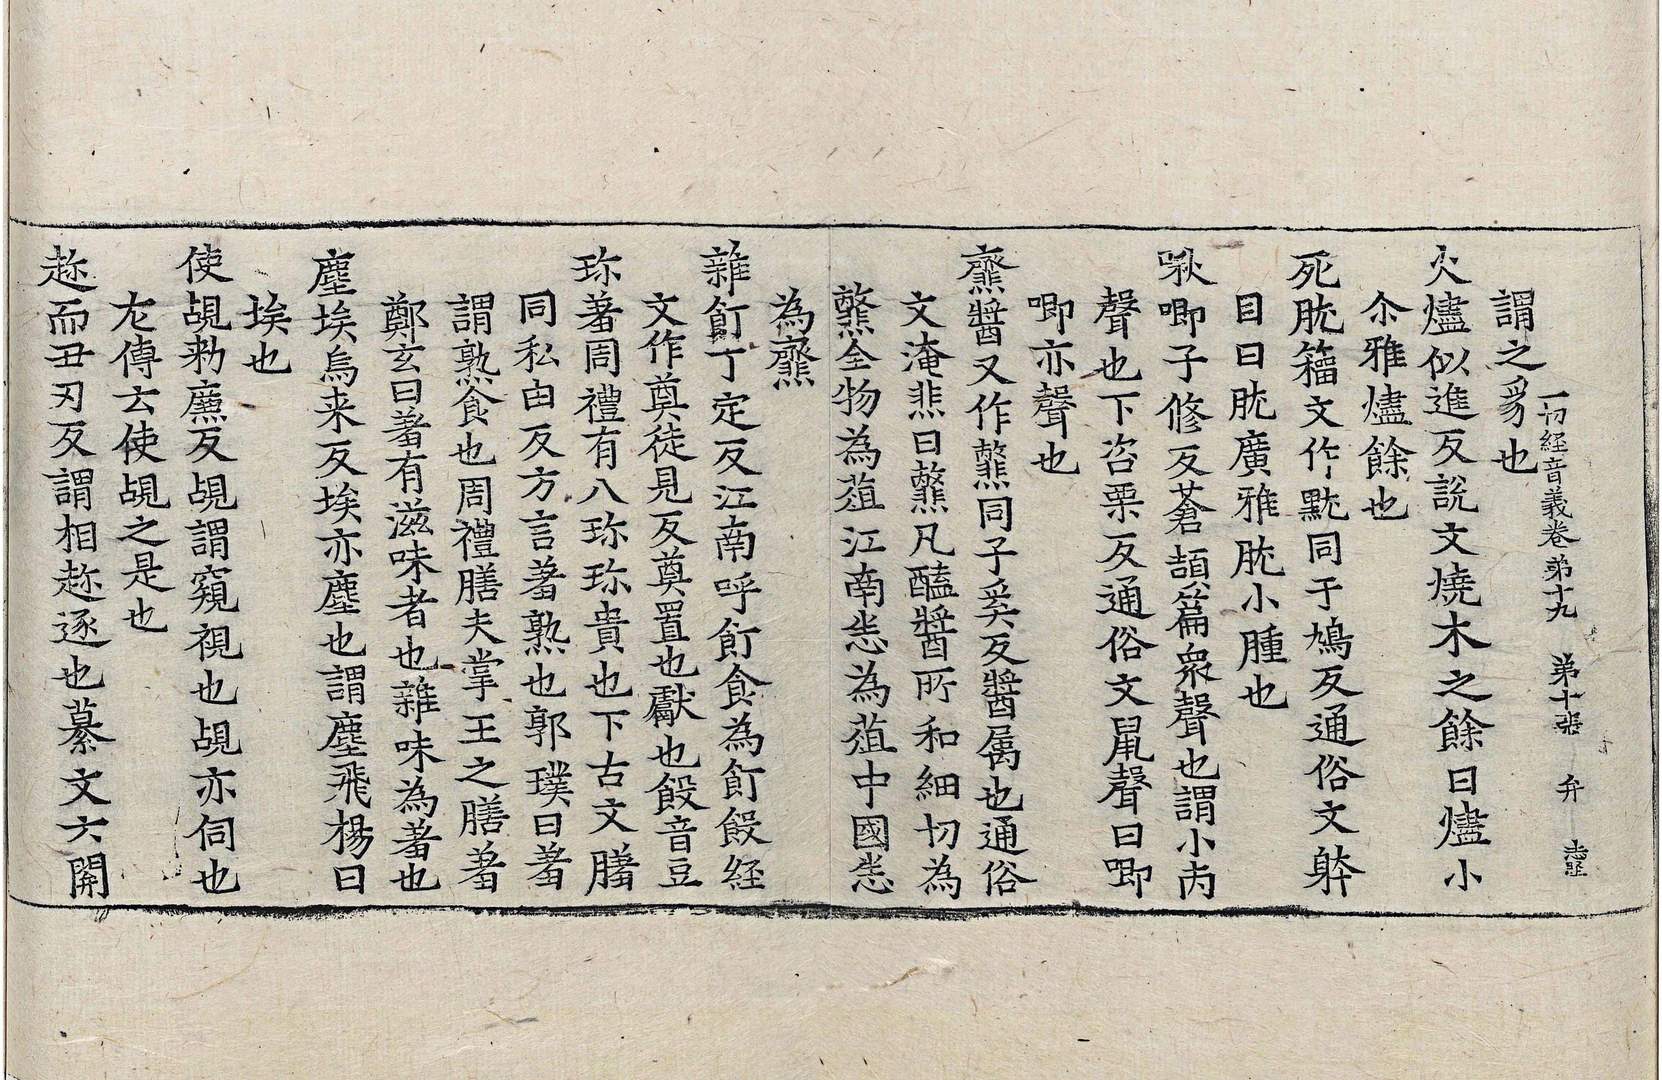 一切経音義卷弟十九 弟十張 弁
謂之爲也
火燼似進反說文燒木之餘曰燼小
尒雅燼餘也
死肬籕文作黕同于鳩反通俗文躰
目曰肬廣雅肬小腫也
啾唧子修反蒼頡篇衆聲也謂小
聲也下咨栗反通俗文鼠聲曰唧
唧亦聲也
齏醬又作韲同子奚反醬属也通俗
文淹韭曰韲凡醯醬所和細切為
韲全物為葅江南悉為葅中國悉
為齏
雜飣丁定反江南呼飣食為飣餖経
文作奠徒見反奠置也獻也餖音豆
珎著周禮有八珎珎貴也下古文䐹
同私由反方言著熟也郭璞曰著
謂熟食也周禮膳夫掌王之膳著
鄭玄曰著有滋味者也雜味為著也
塵埃烏来反埃亦塵也謂塵飛楊曰
埃也
使覘勑廉反覘謂窺視也覘亦伺也
左傳云使覘之是也
趂而丑刃反謂相趂逐也纂文云關